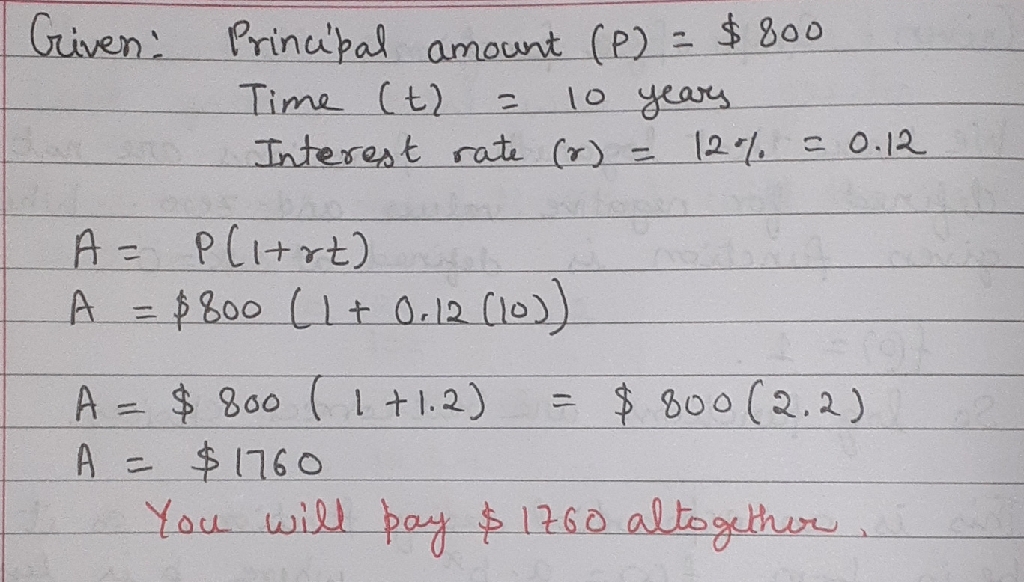 Given: Principal amount (P) = $800
Time (t) = 10 years
Interest rate (r) = 12% = 0.12
A = P(1+rt)
A = $800 (1 + 0.12 (10))
A = $ 800 (1 + 1.2) = $ 800 (2.2)
A = $1760
You will pay $1760 altogether.